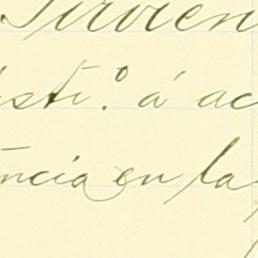 Sirvien
sti.º á ac
ncia en la